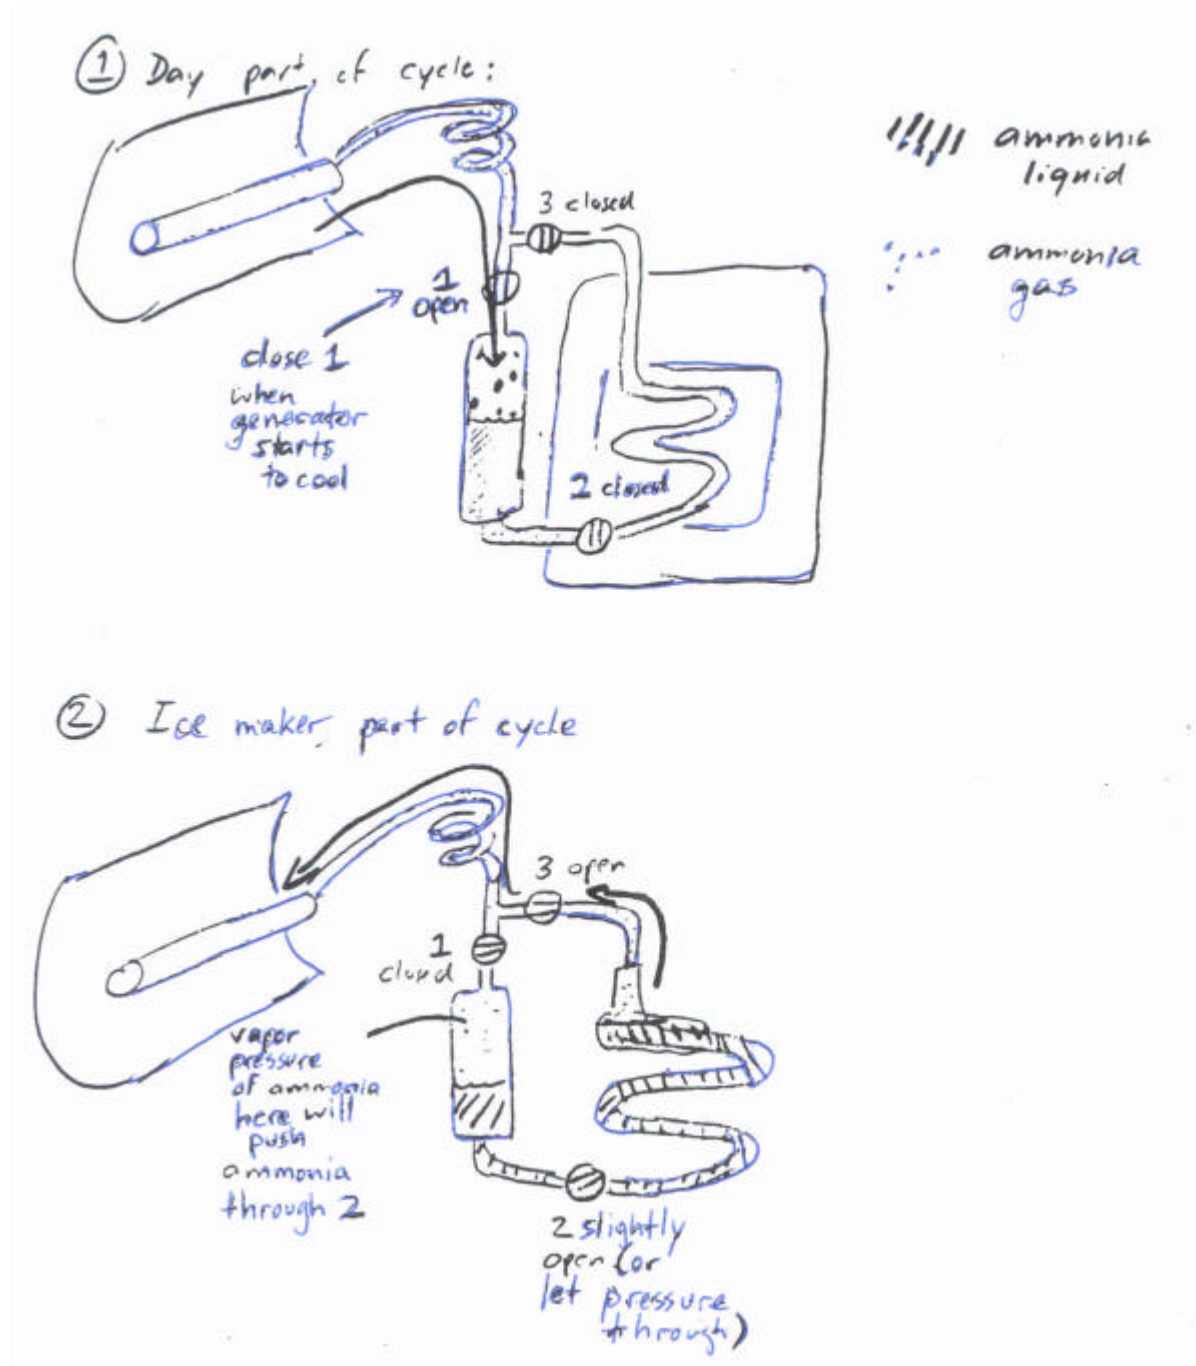 ① Day part of cycle:
ammonia
liquid
3 closed
ammonia
gas
1
open
close 1
when
generator
starts
to cool
2 closed
② Ice maker part of cycle
3 open
1
closed
vapor
pressure
of ammonia
here will
push
ammonia
through 2
2 slightly
open (or
let pressure
through)